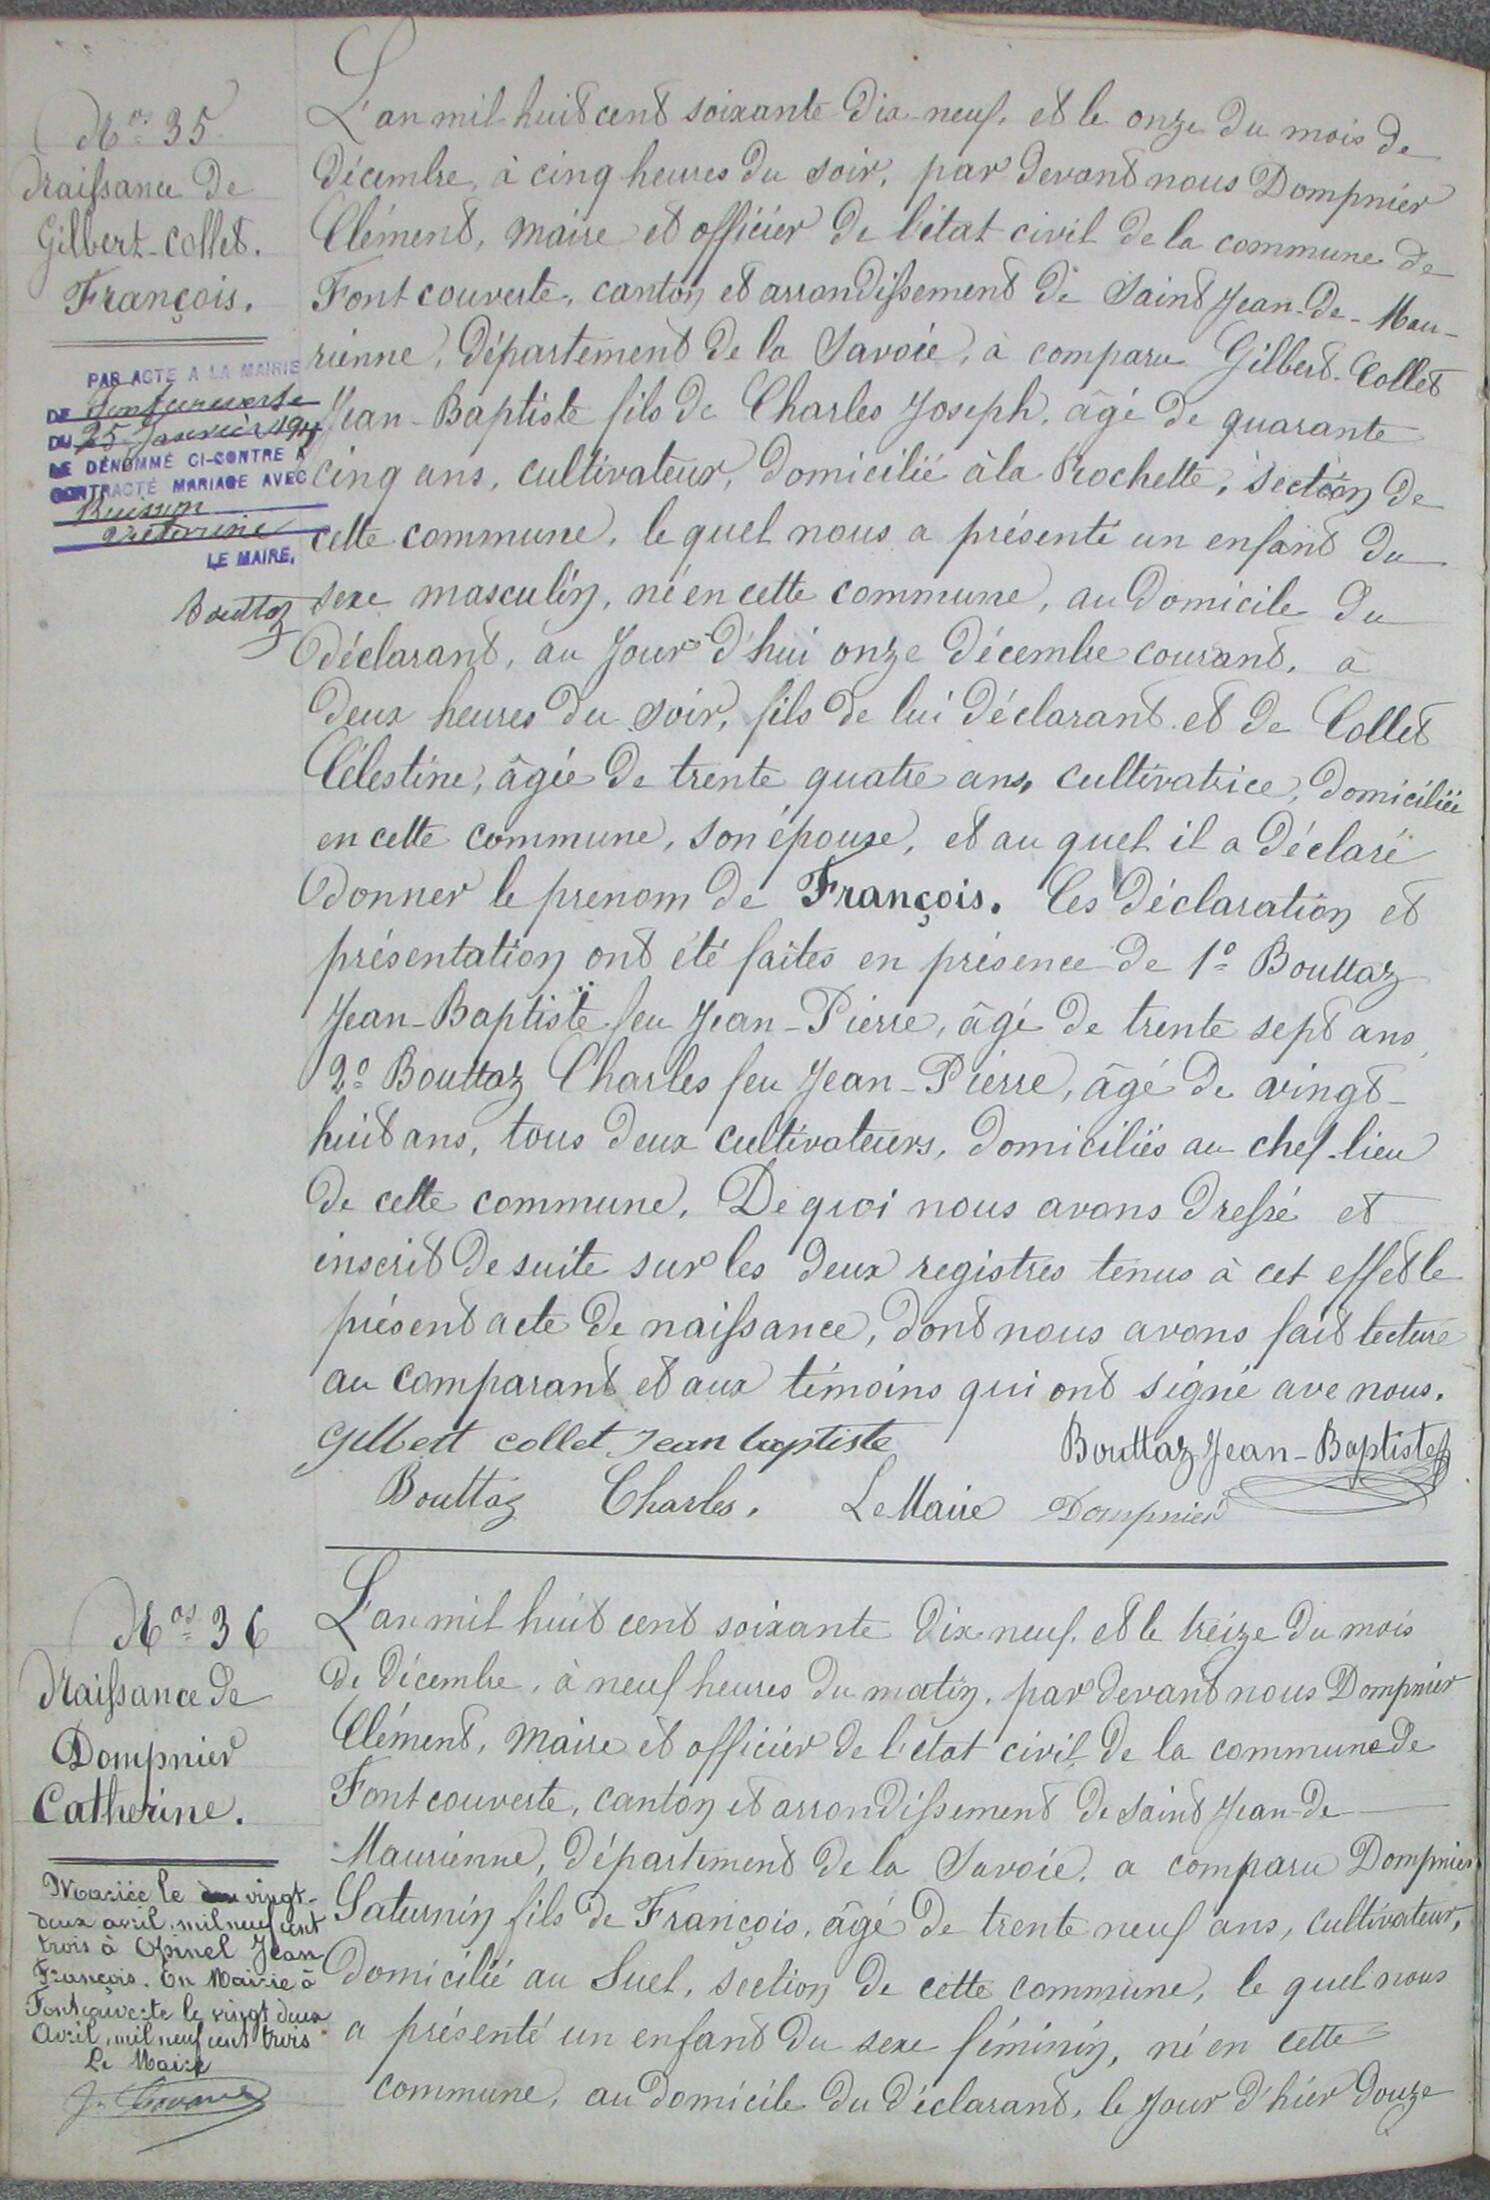 Nos 35
Naissance de
Gilbert-Collet.
François.
PAR ACTE A LA MAIRIE
DE Fontcouverte
DU 25 Janvier
LE DÉNOMMÉ CI-CONTRE A
CONTRACTÉ MARIAGE AVEC
Buisson
Victorine
LE MAIRE,
Bouttaz
L'an mil huit cent soixante dix-neuf, et le onze du mois de
décembre, à cinq heures du soir, par devant nous Dompnier
Clément, maire et officier de l'état civil de la commune de
Fontcouverte, canton et arrondissement de Saint Jean-de-Mau-
rienne, département de la Savoie, a comparu Gilbert-Collet
Jean-Baptiste fils de Charles Joseph, âgé de quarante
cinq ans, cultivateur, domicilié à la Rochette, section de
cette commune, le quel nous a présenté un enfant du
sexe masculin, né en cette commune, au domicile du
déclarant, au jour d'hui onze décembre courant, à
deux heures du soir, fils de lui déclarant et de Collet
Célestine, âgée de trente quatre ans, cultivatrice, domiciliée
en cette commune, son épouse, et au quel il a déclaré
donner le prenom de François. Ces déclaration et
présentation ont été faites en présence de 1º Bouttaz
Jean-Baptiste feu Jean-Pierre, âgé de trente sept ans,
2º Bouttaz Charles feu Jean-Pierre, âgé de vingt-
huit ans, tous deux cultivateurs, domiciliés au chef-lieu
de cette commune. De quoi nous avons dressé et
inscrit de suite sur les deux registres tenus à cet effet le
présent acte de naissance, dont nous avons fait lecture
au comparant et aux témoins qui ont signé ave nous.
Gilbert collet Jean baptiste Bouttaz Jean-Baptiste
Bouttaz Charles. Le Maire Dompnier
Nos 36
Naissance de
Dompnier
Catherine.
Mariée le vingt-
deux avril, mil neuf cent
trois à Opinel Jean
François. En Mairie à
Fontcouverte le vingt deux
Avril, mil neuf cent trois
Le Maire
L'an mil huit cent soixante dix neuf, et le treize du mois
de décembre, à neuf heures du matin, par devant nous Dompnier
Clément, maire et officier de l'état civil de la commune de
Fontcouverte, canton et arrondissement de Saint Jean-de
Maurienne, département de la Savoie, a comparu Dompnier
Saturnin fils de François, âgé de trente neuf ans, cultivateur,
domicilié au Suet, section de cette commune, le quel nous
a présenté un enfant du sexe féminin, né en cette
commune, au domicile du déclarant, le jour d'hier douze